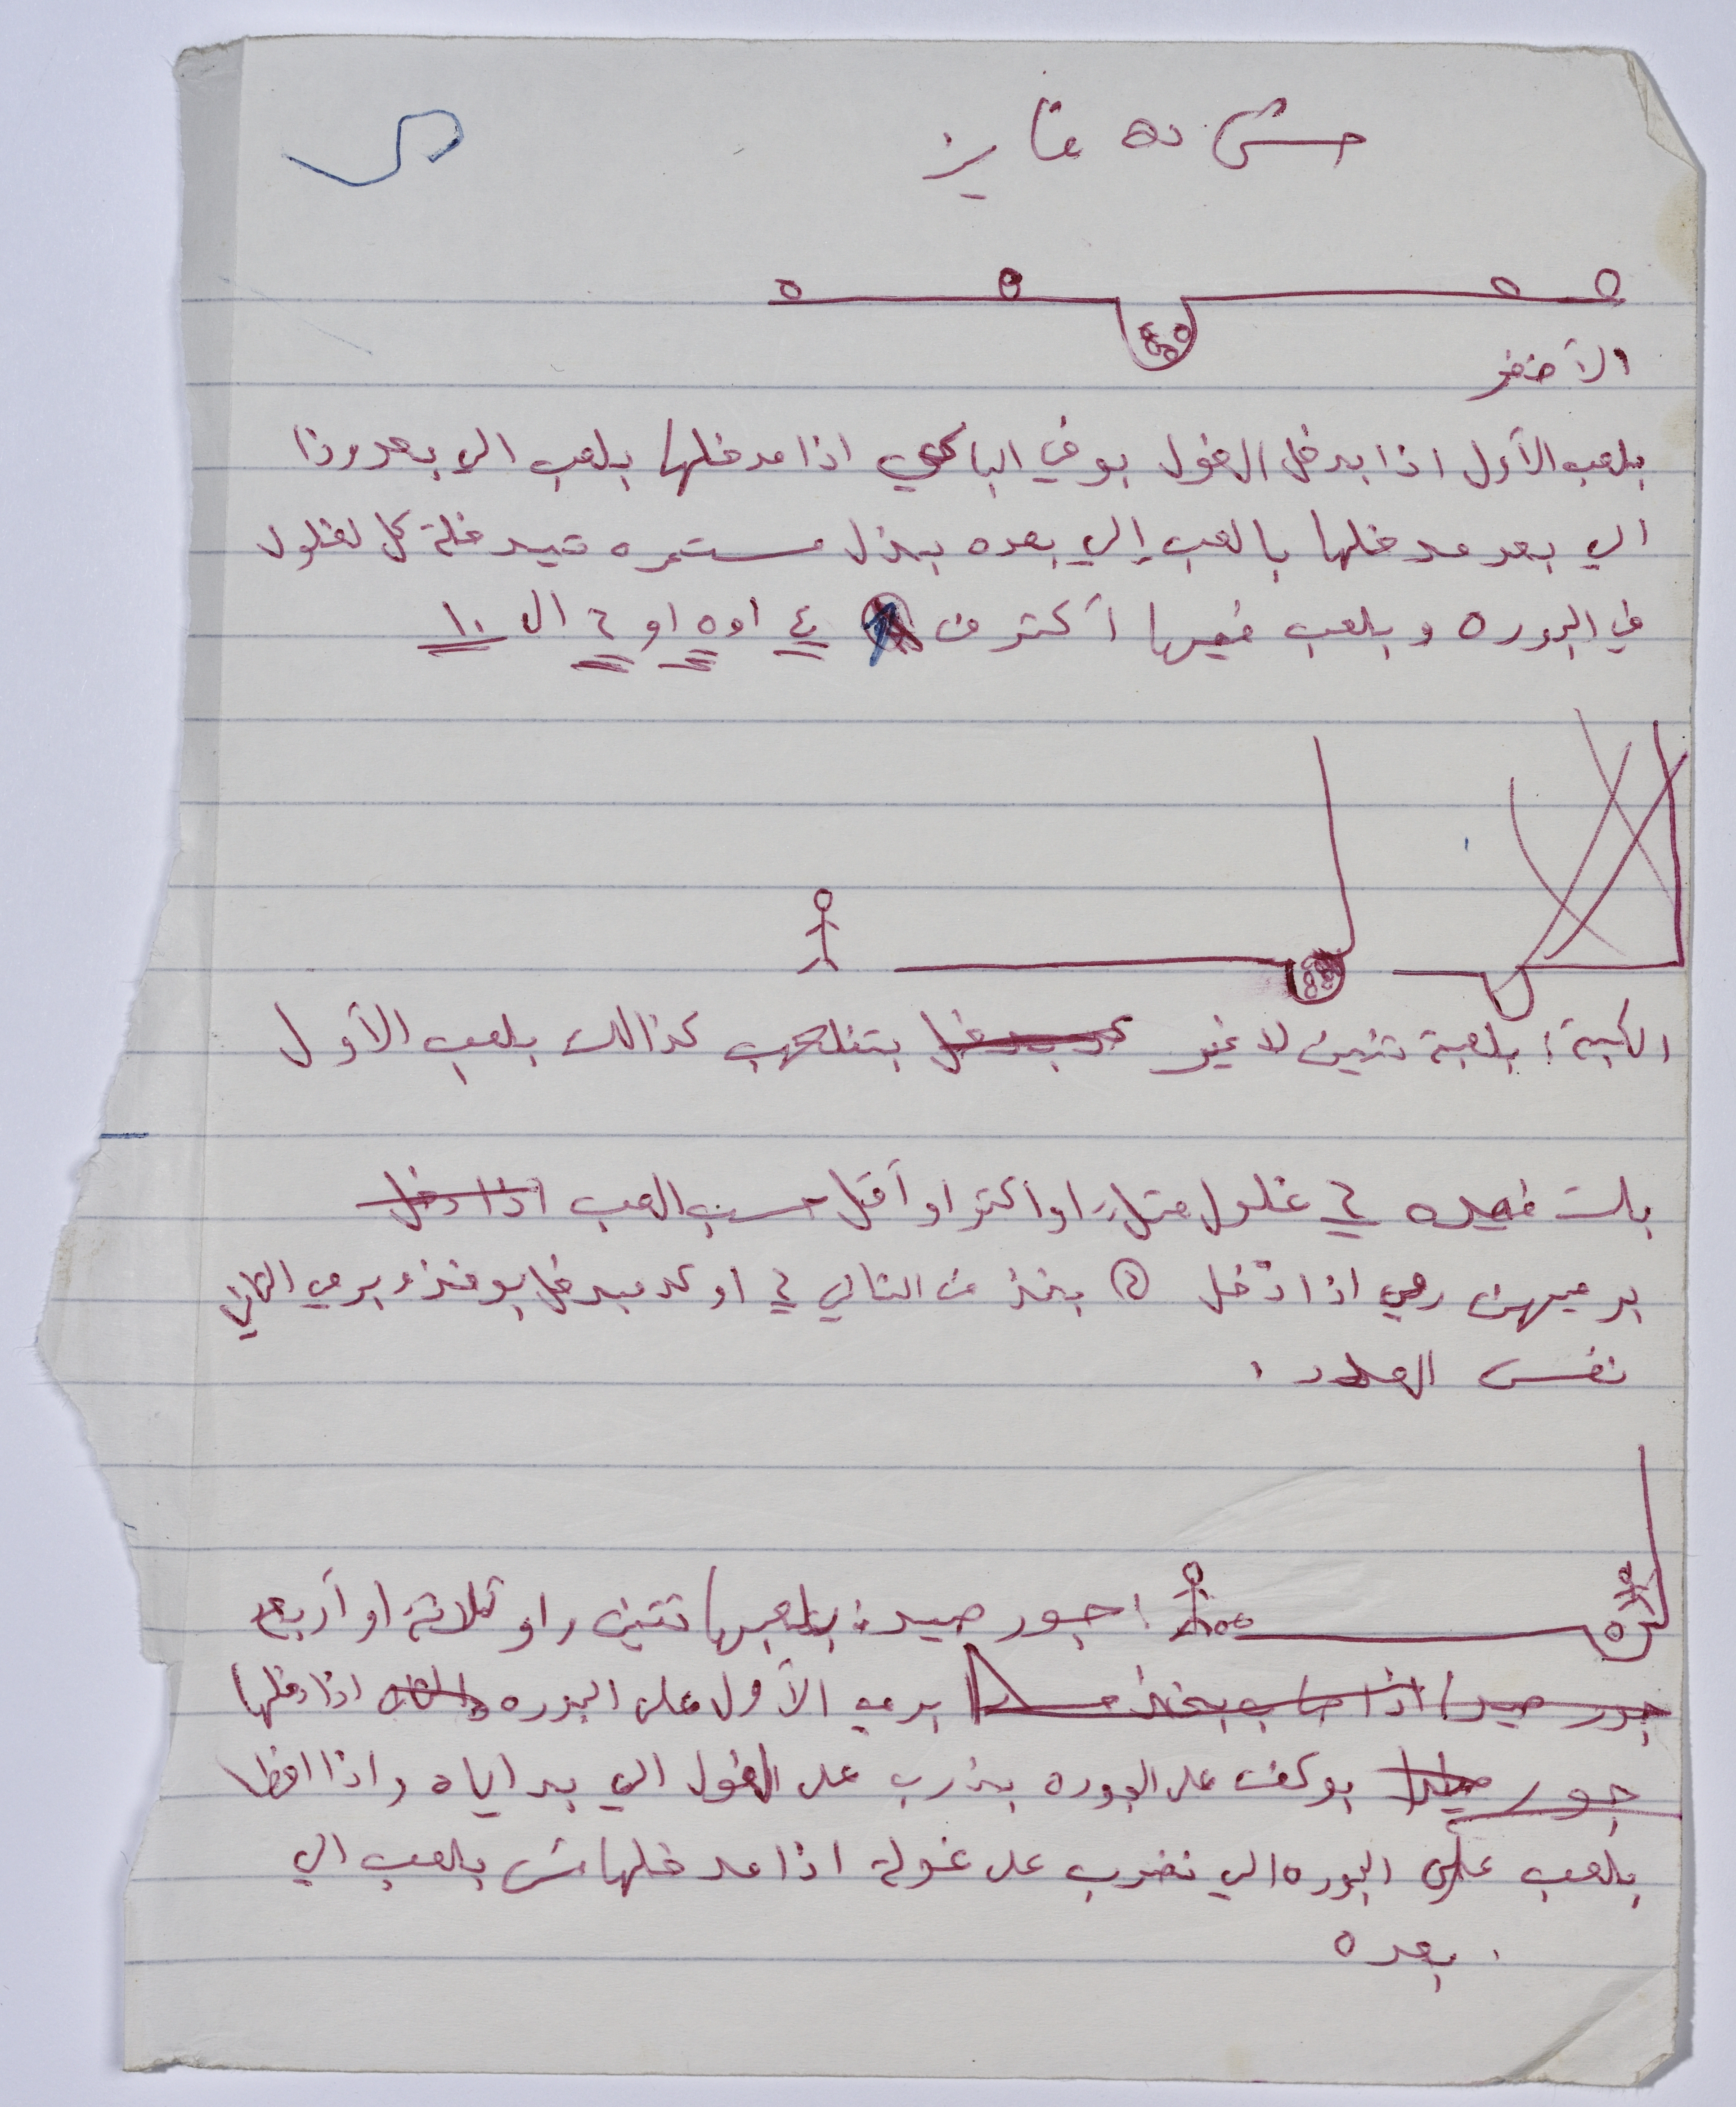 الأخضر
بلعب الأول اذا بدخل الغول بوخ الباكي اذا مدخلها بلعب الي بعدو واذا
الي بعد مدخلها بالعب إلي بعده بضل مستمره تيدخلة كل لغلول
في الجوره وبلعب فيها أكتر من ٤ او ٥ او ٦ ال ١٠
الكبة: بلعبة تنين لا غير بتنلعب كذالك بلعب الأول
بلت فـيده ٦ غلول مثلا او اكتر او أقل حسب العب اذا دخل
برميهن رمي اذا دخل ٥ بخذ من التاني ٦ او كد مبدخل بوخذ وبرمي التاني
نفس العدد .
اجور صيد: بلعبها تنين او ثلاثة او أربعه
جور صيد اذا صاب بخذ برمي الأول على الجوره اذا دخلها
جور بوكف على الجوره بضرب على الغول الي بد اياه واذا اخطا
بلعب على الجوره الي نضرب على غولة اذا مدخلهاش بلعب الي
بعده .